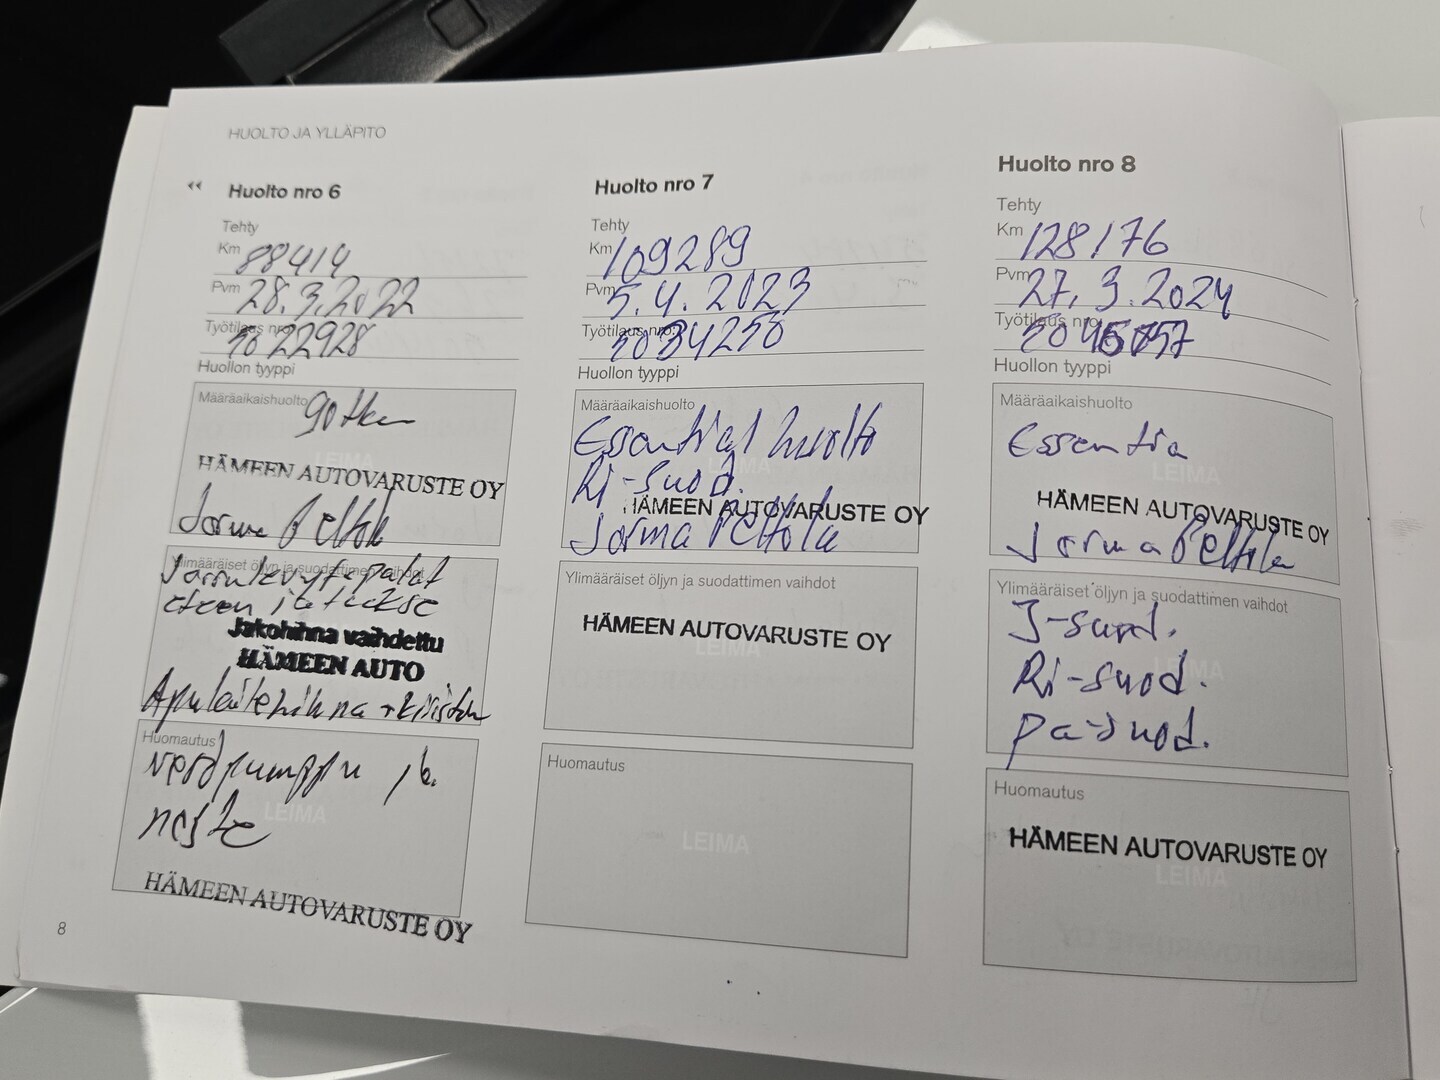 HUOLTO JA YLLÄPITO
‹‹ Huolto nro 6
Tehty
Km 88414
Pvm 28.3.2022
Työtilaus nro: 3022928
Huollon tyyppi
Määräaikaishuolto 90tkm
LEIMA
HÄMEEN AUTOVARUSTE OY
Jorma Peltola
Ylimääräiset öljyn ja suodattimen vaihdot
Jarrulevyt+palat
eteen ja taakse
Jakohihna vaihdettu
HÄMEEN AUTO
Apulaitehihna +kiristin
Huomautus
vesipumppu ja
neste
LEIMA
HÄMEEN AUTOVARUSTE OY
8
Huolto nro 7
Tehty
Km 109289
Pvm 5.4.2023
Työtilaus nro:
Huollon tyyppi
Määräaikaishuolto
Essential huolto
LEIMA
Ri-suod.
HÄMEEN AUTOVARUSTE OY
Jorma Peltola
Ylimääräiset öljyn ja suodattimen vaihdot
HÄMEEN AUTOVARUSTE OY
LEIMA
Huomautus
LEIMA
Huolto nro 8
Tehty
Km 128176
Pvm 27.3.2024
Työtilaus nro:
Huollon tyyppi
Määräaikaishuolto
Essentia
LEIMA
HÄMEEN AUTOVARUSTE OY
Jorma Peltola
Ylimääräiset öljyn ja suodattimen vaihdot
I-suod.
LEIMA
Ri-suod.
pa-suod.
Huomautus
HÄMEEN AUTOVARUSTE OY
LEIMA